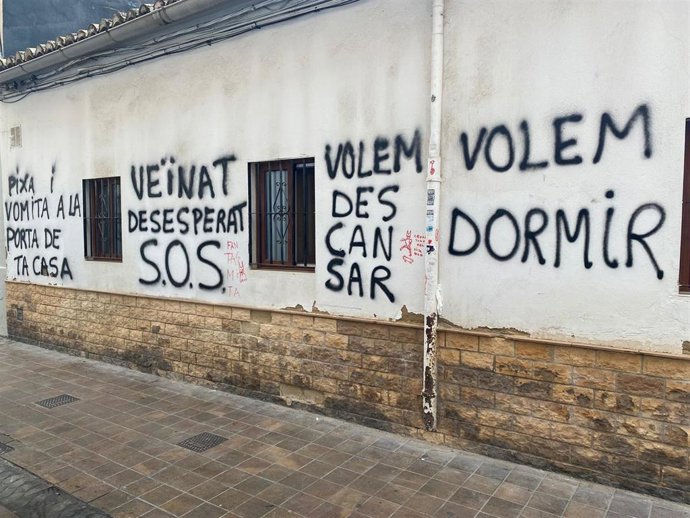 PIXA I
VOMITA A LA
PORTA DE
TA CASA
VEÏNAT
DESESPERAT
S.O.S.
FAN
TAS
MI
TA
VOLEM
DES
CAN
SAR
VOLEM
DORMIR